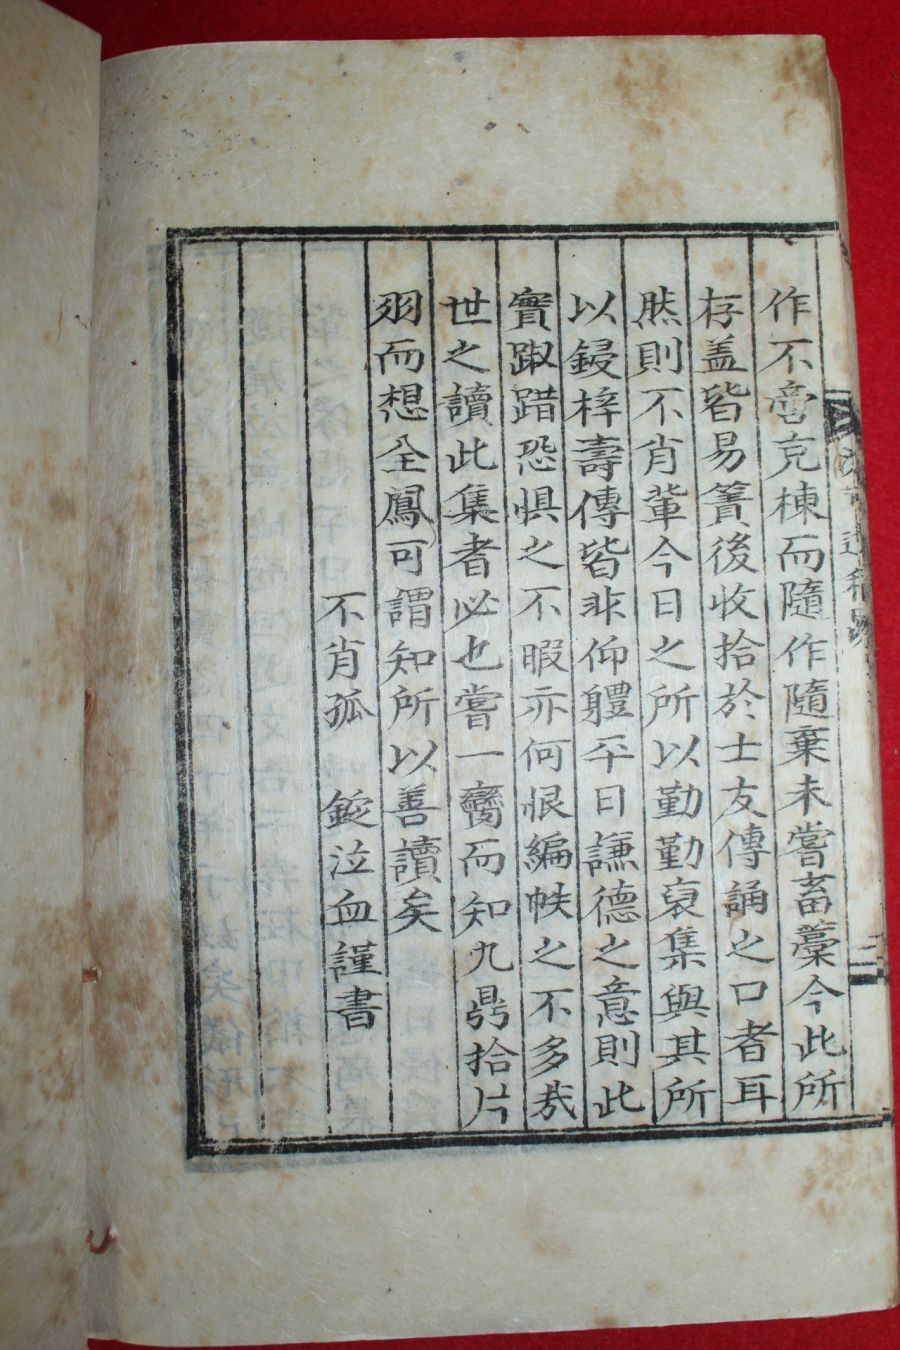 作不啻充棟而隨作隨棄未嘗畜藁今此所
存盖皆易簀後收拾於士友傳誦之口者耳
然則不肖輩今日之所以勤勤裒集與其所
以鋟梓壽傳皆非仰軆平日謙德之意則此
實踧踖恐惧之不暇亦何恨編帙之不多㦲
世之讀此集者必也嘗一臠而知九鼎拾片
羽而想全鳳可謂知所以善讀矣
不肖孤 鋑泣血謹書